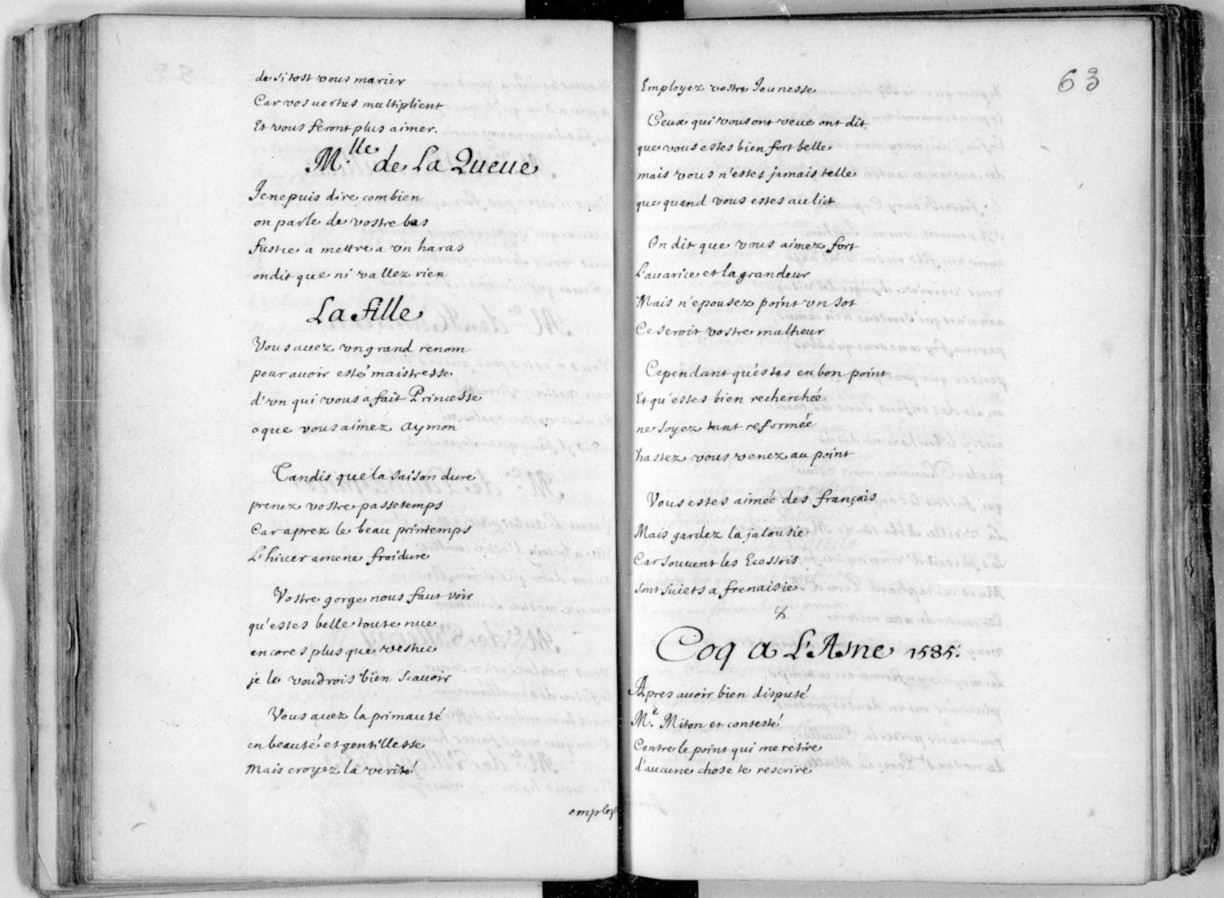 de si tost vous marier
Car vos vertus multiplient
Et vous feront plus aimer.
M.lle de La Queue
Je ne puis dire combien
on parle de vostre bas
fustie a mettre a vn haras
on dit que ni vallez rien
La fille
Vous auez vn grand renom
pour auoir esté maistresse
d'vn qui vous a fait Princesse
o que vous aimez Aymon
Tandis que la saison dure
prenez vostre passetemps
Car aprez le beau printemps
L'hiuer amene froidure
Vostre gorge nous faut voir
qu'estes belle toute nue
encores plus que vestue
je le voudrois bien scauoir
Vous auez la primauté
en beauté et gentillesse
Mais croyez la verité
employ
63
Employez vostre Jeunesse
Ceux qui vous ont veue ont dit
que vous estes bien fort belle
mais vous n'estes jamais telle
que quand vous estes au lict
On dit que vous aimez fort
L'auarice et la grandeur
Mais n'epousez point vn sot
Ce seroit vostre malheur
Cependant qu'estes en bon point
Et qu'estes bien recherchée
ne soyez tant reformée
hastez vous venez au point
Vous estes aimée des françois
Mais gardez la jalousie
Car souuent les Ecossois
sont suiets a frenaisie
Coq a L'Asne 1585.
Apres avoir bien disputé
M.e Miton et contesté
Contre le point qui me retire
d'aucune chose te rescrire